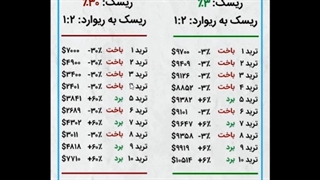 ریسک: ۳٪
ریسک به ریوارد: ۱:۲
ترید ۱ باخت -۳% $۹۷۰۰
ترید ۲ باخت -۳% $۹۴۰۹
ترید ۳ باخت -۳% $۹۱۲۶
ترید ۴ باخت -۳% $۸۸۵۲
ترید ۵ برد +۶% $۹۳۸۳
ترید ۶ باخت -۳% $۹۱۰۱
ترید ۷ برد +۶% $۹۶۴۷
ترید ۸ باخت -۳% $۹۳۵۸
ترید ۹ برد +۶% $۹۹۱۹
ترید ۱۰ برد +۶% $۱۰۵۱۴
ریسک: ۳۰٪
ریسک به ریوارد: ۱:۲
ترید ۱ باخت -۳۰% $۷۰۰۰
ترید ۲ باخت -۳۰% $۴۹۰۰
ترید ۳ باخت -۳۰% $۳۴۰۰
ترید ۴ باخت -۳۰% $۲۴۰۱
ترید ۵ برد +۶۰% $۳۸۴۱
ترید ۶ باخت -۳۰% $۲۶۸۹
ترید ۷ برد +۶۰% $۴۳۰۲
ترید ۸ باخت -۳۰% $۳۰۱۱
ترید ۹ برد +۶۰% $۴۸۱۸
ترید ۱۰ برد +۶۰% $۷۷۱۰